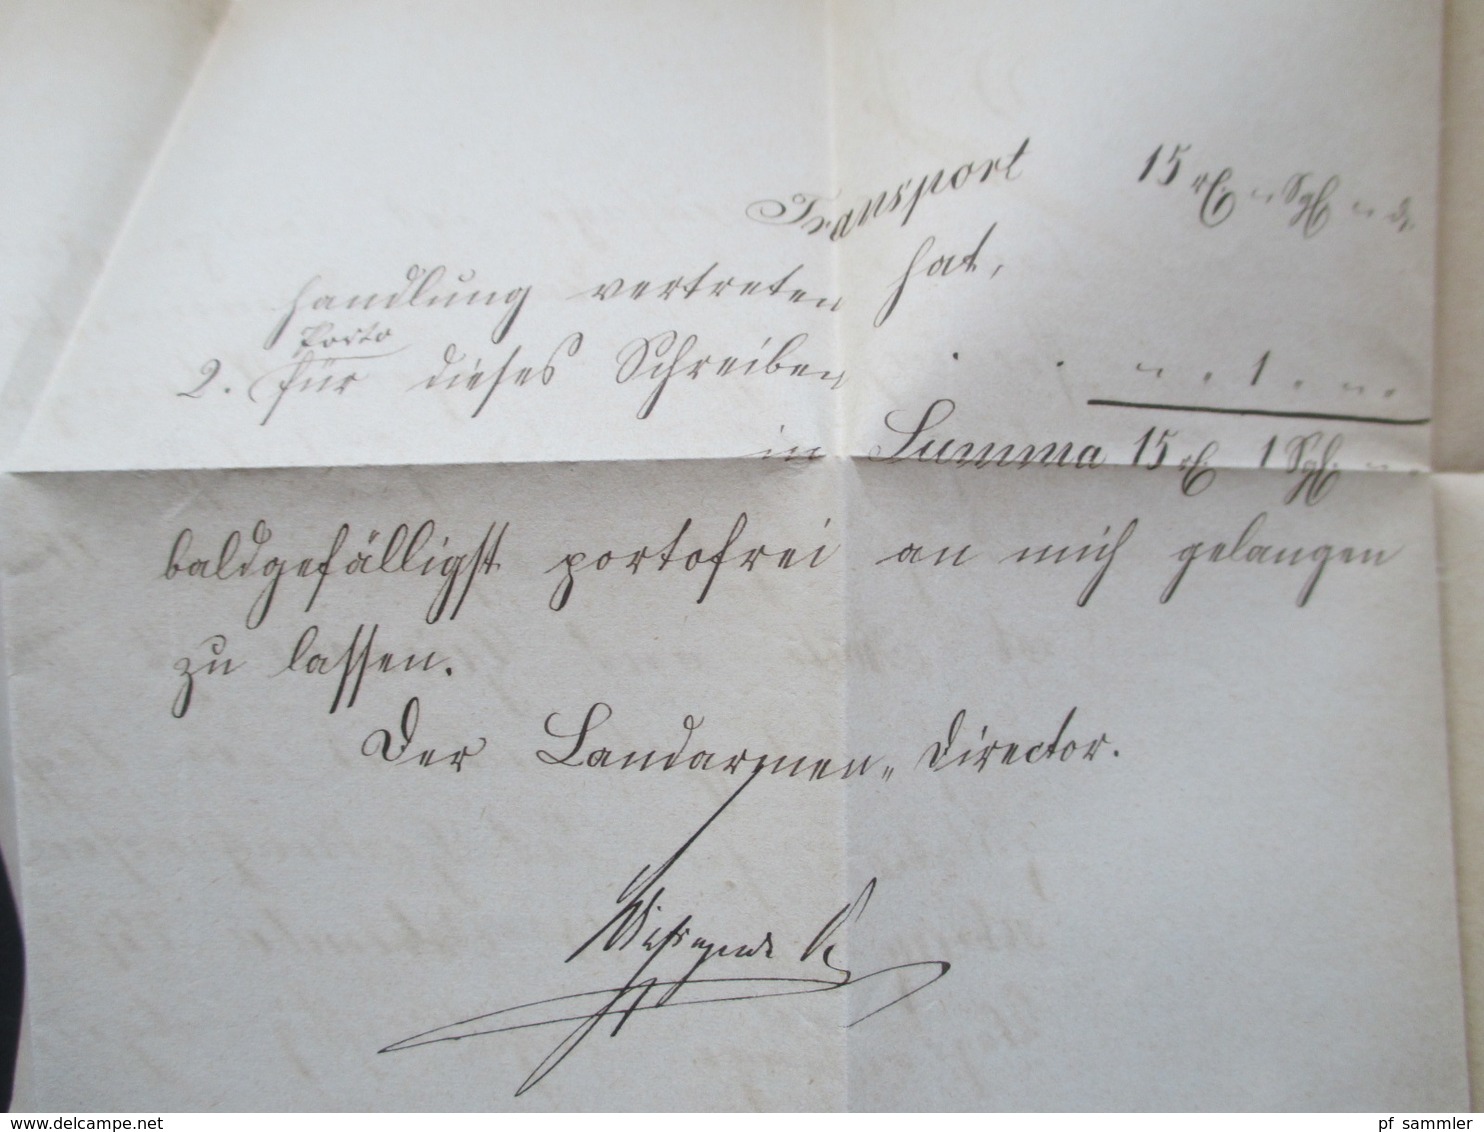 Transport 15 rℓ. " Sgℓ " d.
handlung vertreten hat,
Porto
2. für dieses Schreiben . . " . 1 . " .
in Summa 15 rℓ. 1 Sgℓ. " .
baldgefälligst portofrei an mich gelangen
zu lassen.
Der Landarmen-Director.
pf sammler